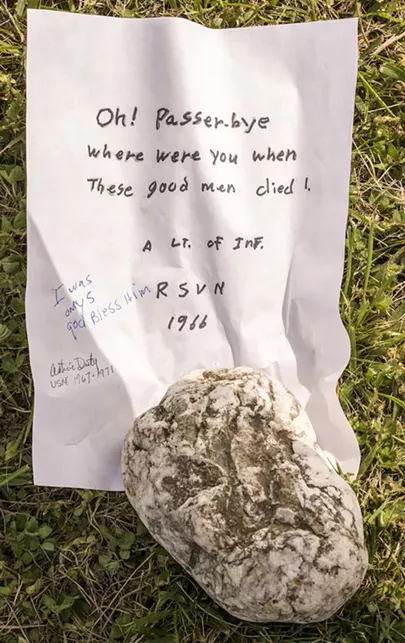 Oh! Passer-bye
where were you when
These good men died!.
A LT. of INF.
RSVN
1966
I was
only 5
god Bless Him
Active Duty
USN 1967-1971